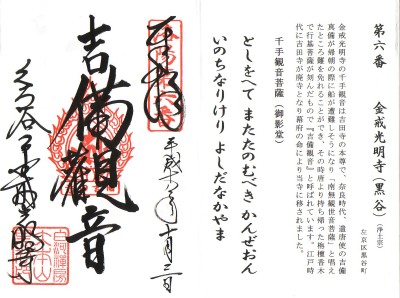 第六番　金戒光明寺（黒谷）
（浄土宗）
左京区黒谷町
金戒光明寺の千手観音は吉田寺の本尊で、奈良時代、遣唐使の吉備
真備が帰朝の際に船が遭難しそうになり「南無観世音菩薩」と唱え
たところ難を免れることができ、その時唐より持ち帰った栴檀香木
で行基菩薩が刻んだもので『吉備観音』と呼ばれています。江戸時
代に吉田寺が廃寺となり幕府の命により当寺に移されました。
千手観音菩薩（御影堂）
としをへて　またたのむべき　かんぜおん
いのちなりけり　よしだなかやま
奉拝
平成十八年十月三日
吉備觀音
くろ谷金戒光明寺